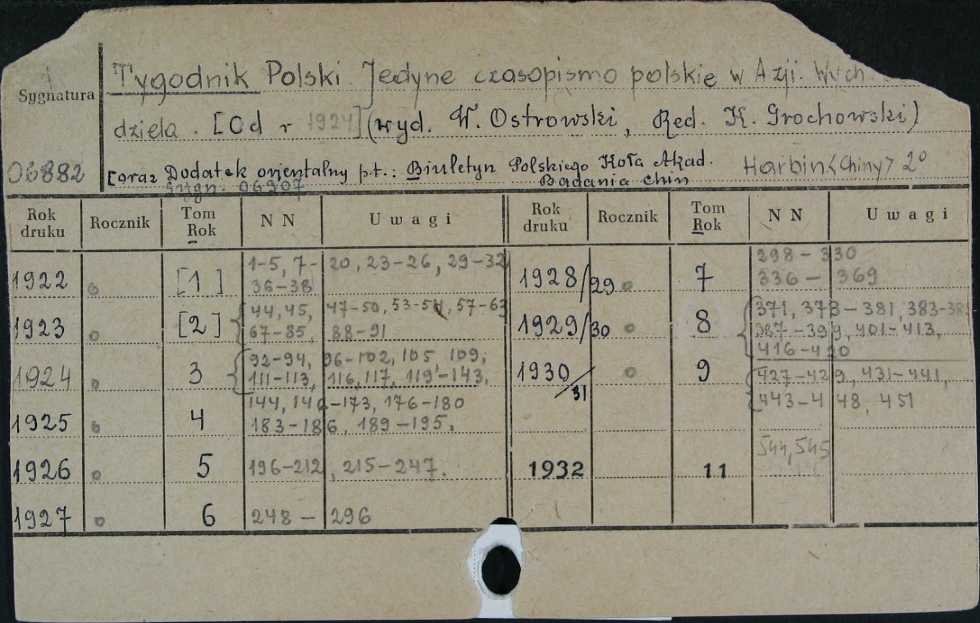 Sygnatura
Tygodnik Polski. Jedyne czasopismo polskie w Azji. Wych.
dziela. [Od r 1924] (wyd. W. Ostrowski, Red. K. Grochowski)
06882
[oraz Dodatek orjentalny p.t.: Biuletyn Polskiego Koła Akad. Harbin <Chiny> 2°
Sygn. 06907 Badania Chin
Rok druku Rocznik Tom Rok N N Uwagi Rok druku Rocznik Tom Rok N N Uwagi
1922 o [1] 1-5, 7-20, 23-26, 29-32
36-38
1928/29 o 7 298 - 330
336 - 369
1923 o [2] 44, 45, 47-50, 53-54, 57-63
67-85, 88-91
1929/30 o 8 371, 373-381, 383-
387-399, 401-413,
416-420
1924 o 3 92-94, 96-102, 105, 109,
111-113, 116, 117, 119-143,
1930/31 o 9 427-429, 431-441,
443-448, 451
1925 o 4 144, 146-173, 176-180
183-186, 189-195,
1926 o 5 196-212, 215-247.
1932 11 544, 545
1927 o 6 248 - 296